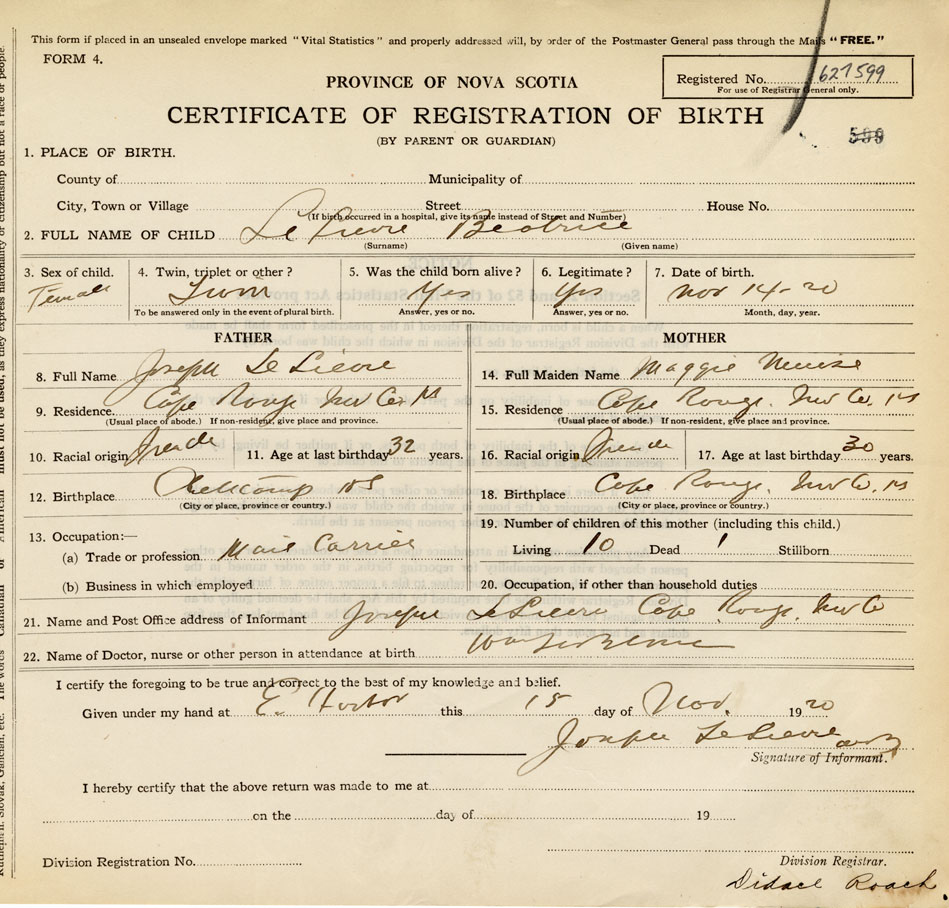 This form if placed in an unsealed envelope marked "Vital Statistics" and properly addressed will, by order of the Postmaster General pass through the Mails "FREE."
FORM 4.
Registered No. 627599
For use of Registrar General only.
PROVINCE OF NOVA SCOTIA
CERTIFICATE OF REGISTRATION OF BIRTH
(BY PARENT OR GUARDIAN)
599
1. PLACE OF BIRTH.
County of Municipality of
City, Town or Village Street House No.
(If birth occurred in a hospital, give its name instead of Street and Number)
2. FULL NAME OF CHILD Le Lievre Beatrice
(Surname) (Given name)
3. Sex of child. 4. Twin, triplet or other? 5. Was the child born alive? 6. Legitimate? 7. Date of birth.
Female Twin Yes Yes Nov 14-20
To be answered only in the event of plural birth. Answer, yes or no. Answer, yes or no. Month, day, year.
FATHER MOTHER
8. Full Name Joseph Le Lievre 14. Full Maiden Name Maggie
9. Residence. Cap Rouge Inv Co NS 15. Residence Cap Rouge. Inv Co. NS
(Usual place of abode.) If non-resident, give place and province. (Usual place of abode.) If non-resident, give place and province.
10. Racial origin French 11. Age at last birthday 32 years. 16. Racial origin French 17. Age at last birthday 30 years.
12. Birthplace NS 18. Birthplace Cap Rouge. Inv Co. NS
(City or place, province or country.) (City or place, province or country.)
13. Occupation:— 19. Number of children of this mother (including this child.)
(a) Trade or profession Mail Carrier Living 10 Dead 1 Stillborn
(b) Business in which employed 20. Occupation, if other than household duties
21. Name and Post Office address of Informant Joseph LeLievre Cap Rouge. Inv Co
22. Name of Doctor, nurse or other person in attendance at birth
I certify the foregoing to be true and correct to the best of my knowledge and belief.
Given under my hand at E. Harbor this 15 day of Nov. 1920
Joseph LeLievre
Signature of Informant.
I hereby certify that the above return was made to me at
on the day of 19
Division Registration No. Division Registrar.
Didace Roach